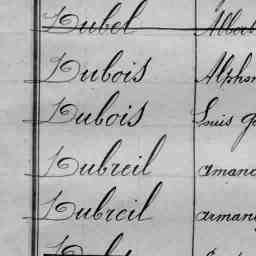 Dubel Albert
Dubois Alphon
Dubois Louis G
Dubreil amand
Dubreil armand